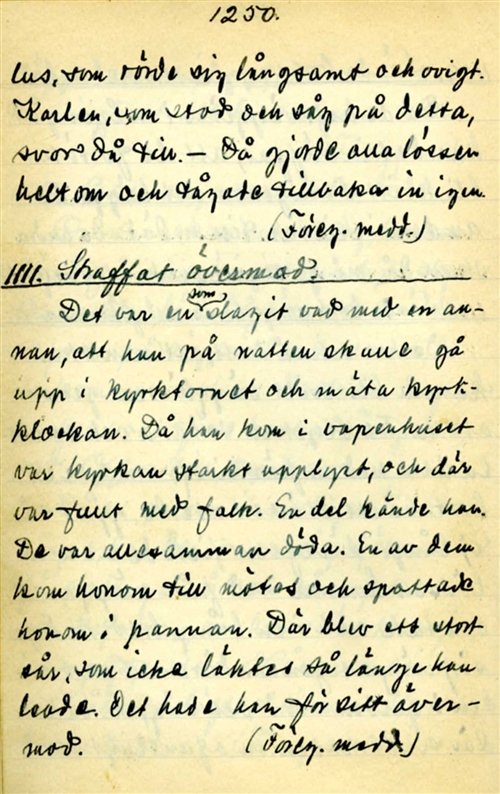 1250.
lus, som rörde sig långsamt och ovigt.
Karlen, som stod och såg på detta,
svor då till. — Då gjorde alla lössen
helt om och tågade tillbaka in igen.
(Föreg. medd.)
1111. Straffat övermod.
Det var en som slagit vad med en an-
nan, att han på natten skulle gå
upp i kyrktornet och mäta kyrk-
klockan. Då han kom i vapenhuset
var kyrkan starkt upplyst, och där
var fullt med folk. En del kände han.
De var allesamman döda. En av dem
kom honom till mötes och spottade
honom i pannan. Där blev ett stort
sår, som icke läktes så länge han
levde. Det hade han för sitt över-
mod. (Föreg. medd.)